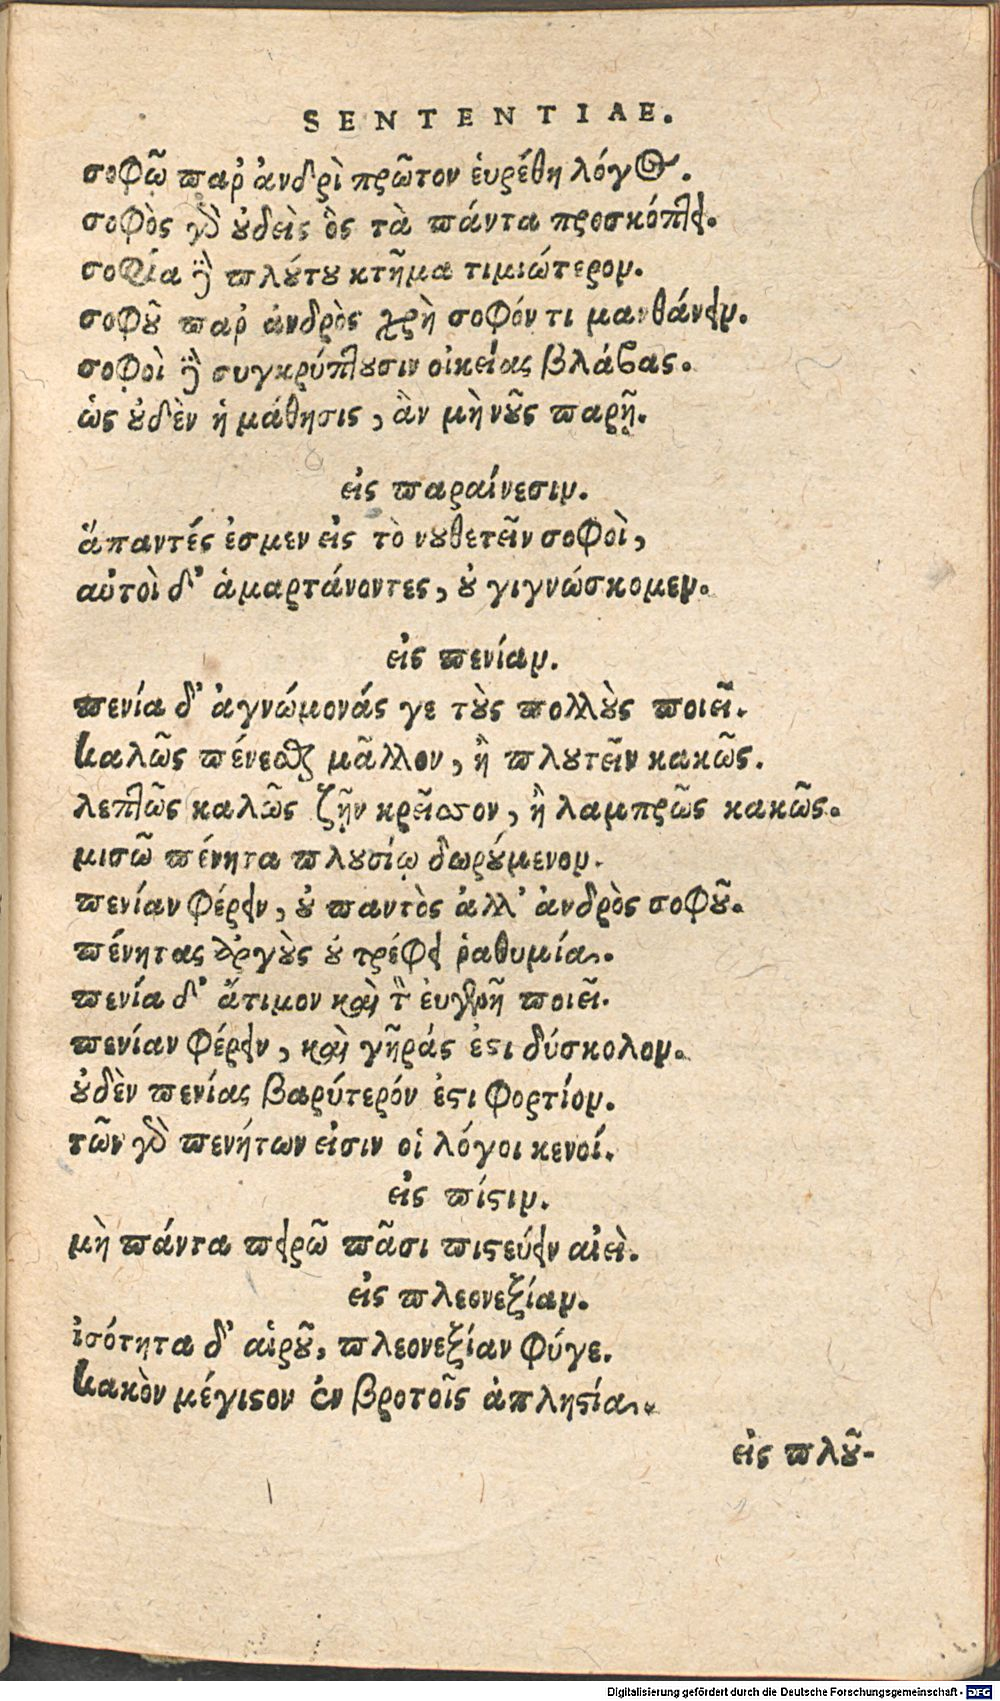 SENTENTIAE.
σοφῷ παρ' ἀνδρὶ πρῶτον εὑρέθη λόγος.
σοφὸς γὰρ οὐδεὶς ὃς τὰ πάντα προσκόπτει.
σοφία γὰρ πλούτου κτῆμα τιμιώτερον.
σοφοῦ παρ' ἀνδρὸς χρὴ σοφόν τι μανθάνειν.
σοφοὶ γὰρ συγκρύπτουσιν οἰκείας βλάβας.
ὡς οὐδὲν ἡ μάθησις, ἂν μὴ νοῦς παρῇ.
εἰς παραίνεσιν.
ἅπαντές ἐσμεν εἰς τὸ νουθετεῖν σοφοὶ,
αὐτοὶ δ' ἁμαρτάνοντες, οὐ γιγνώσκομεν.
εἰς πενίαν.
πενία δ' ἀγνώμονάς γε τοὺς πολλοὺς ποιεῖ.
καλῶς πένεσθαι μᾶλλον, ἢ πλουτεῖν κακῶς.
λεπτῶς καλῶς ζῇν κρεῖσσον, ἢ λαμπρῶς κακῶς.
μισῶ πένητα πλουσίῳ δωρούμενον.
πενίαν φέρειν, οὐ παντὸς ἀλλ' ἀνδρὸς σοφοῦ.
πένητας ἀργοὺς οὐ τρέφει ῥαθυμία.
πενία δ' ἄτιμον καὶ τὸν εὐγενῆ ποιεῖ.
πενίαν φέρειν, καὶ γῆράς ἐστι δύσκολον.
οὐδὲν πενίας βαρύτερόν ἐστι φορτίον.
τῶν γὰρ πενήτων εἰσιν οἱ λόγοι κενοί.
εἰς πίστιν.
μὴ πάντα πειρῶ πᾶσι πιστεύειν αἰεὶ.
εἰς πλεονεξίαν.
ἰσότητα δ' αἱροῦ, πλεονεξίαν φύγε.
κακὸν μέγιστον ἐν βροτοῖς ἀπληστία.
εἰς πλοῦ-
Digitalisierung gefördert durch die Deutsche Forschungsgemeinschaft - DFG